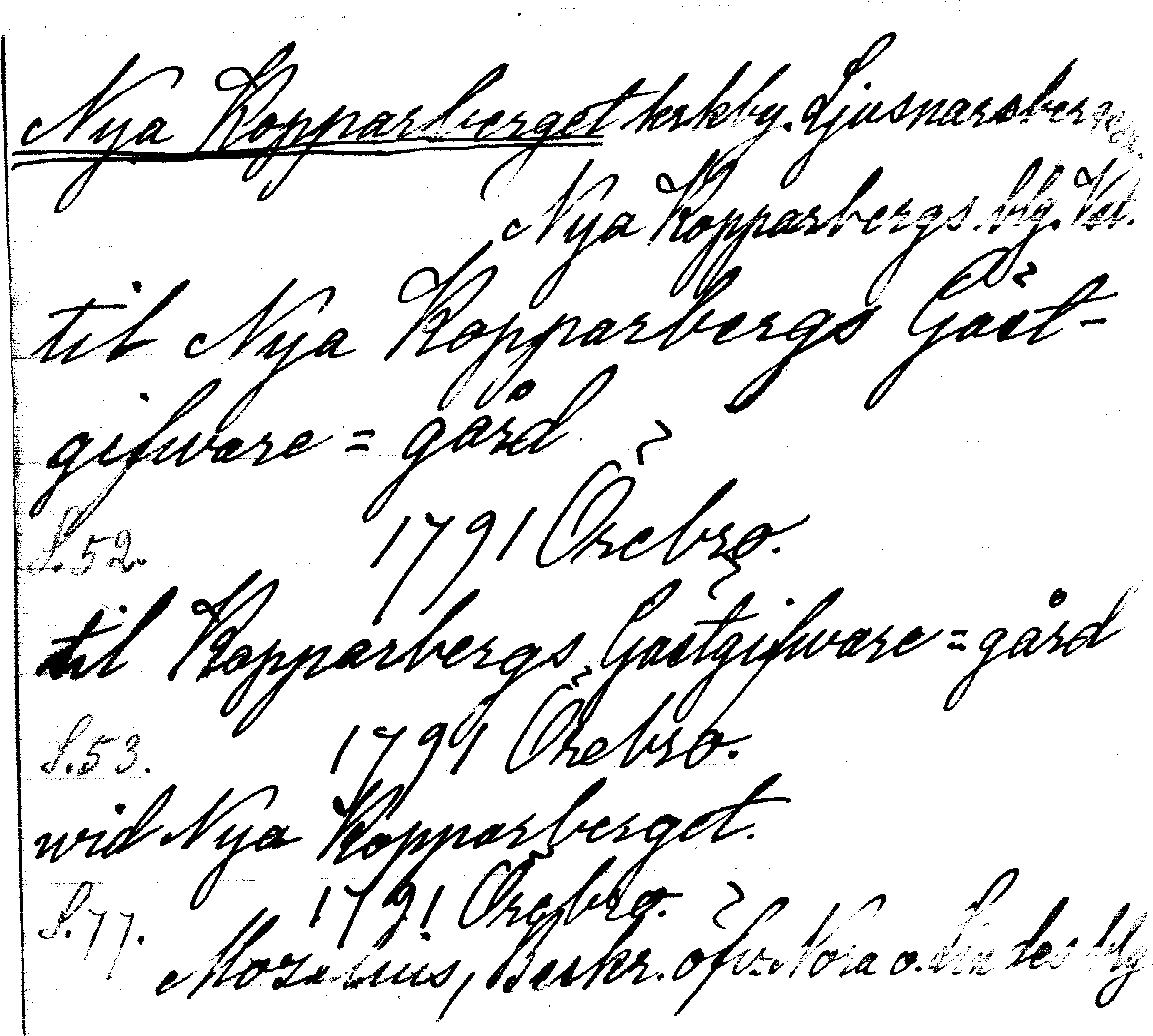 Nya Kopparberget krkby. Ljusnarsbergs
Nya Kopparbergs. blg. Vstl.
til Nya Kopparbergs Gäst-
gifware = gård
S. 52. 1791 Örebro.
til Kopparbergs Gästgifware = gård
S. 53. 1791 Örebro.
wid Nya Kopparberget.
S. 77. 1791 Örebro.
Mozelius, Beskr. öfv. Nora o. Lindes blg